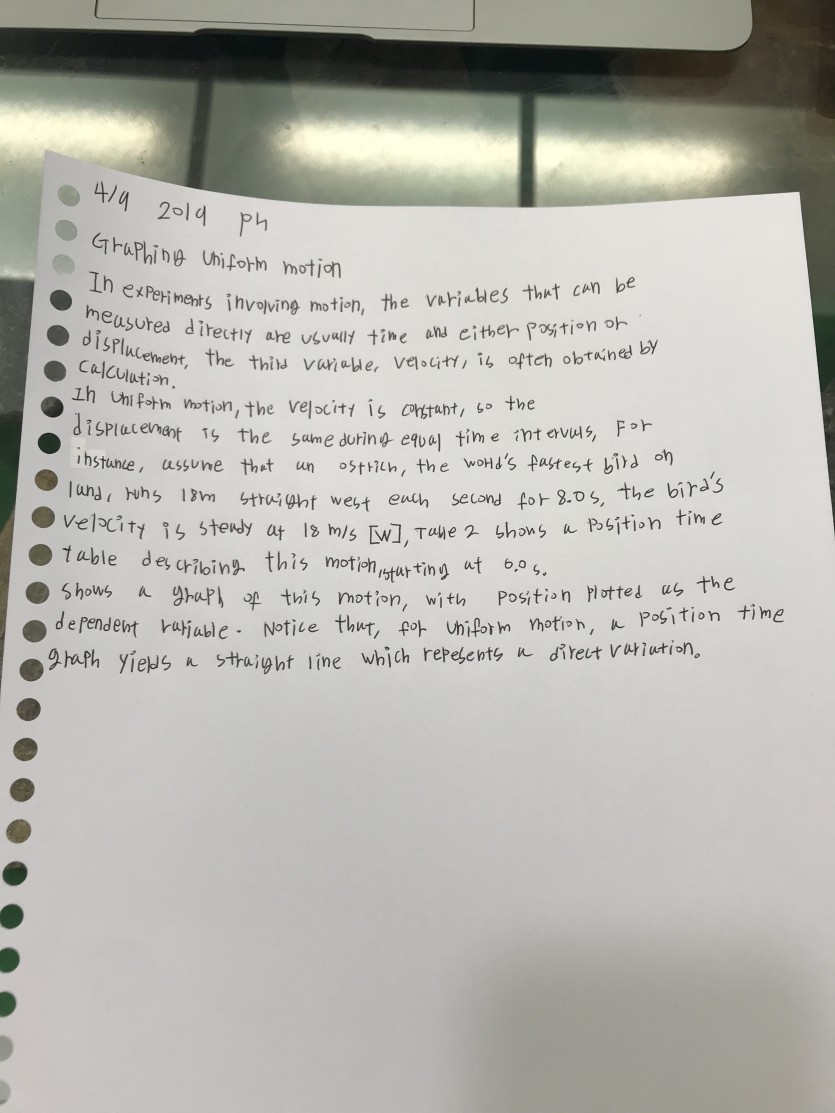 4/9 2019 ph
Graphing Uniform motion
In experiments involving motion, the variables that can be
measured directly are usually time and either position or
displacement, the third variable, velocity, is often obtained by
calculation.
In uniform motion, the velocity is constant, so the
displacement is the same during equal time intervals, For
instance, assume that an ostrich, the world's fastest bird on
land, runs 18m straight west each second for 8.0s, the bird's
velocity is steady at 18 m/s [W], Table 2 shows a position time
table describing this motion, starting at 0.0 s.
shows a graph of this motion, with position plotted as the
dependent variable. Notice that, for uniform motion, a position time
graph yields a straight line which repesents a direct variation.